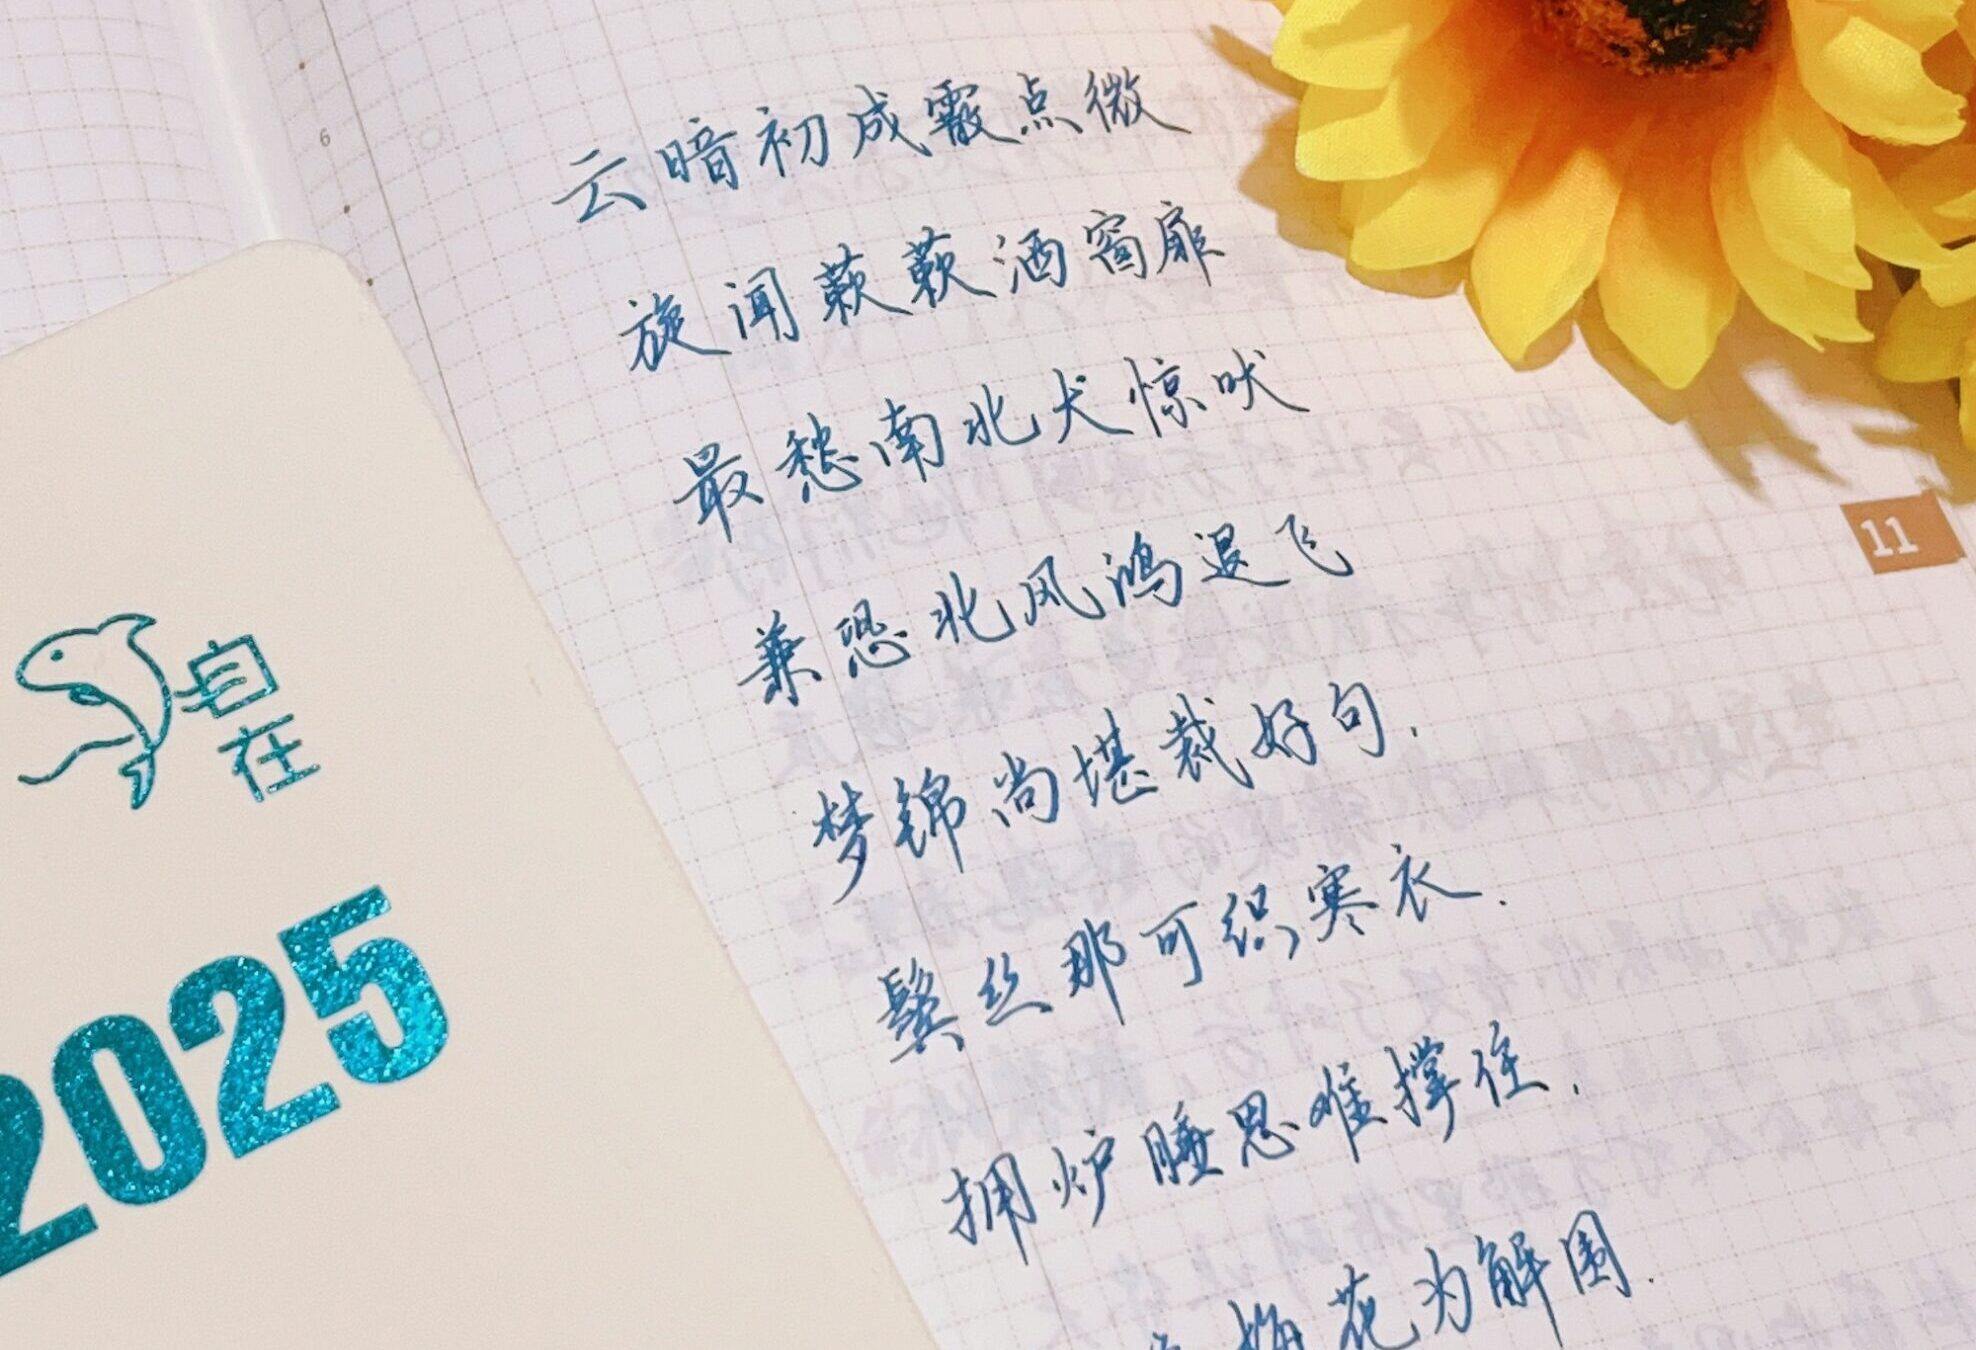 云暗初成霰点微
旋闻蔌蔌洒窗扉
最愁南北犬惊吠
兼恐北风鸿退飞
梦锦尚堪裁好句.
鬓丝那可织寒衣.
拥炉睡思难撑住.
梅花为解围.
6
11
自在
2025